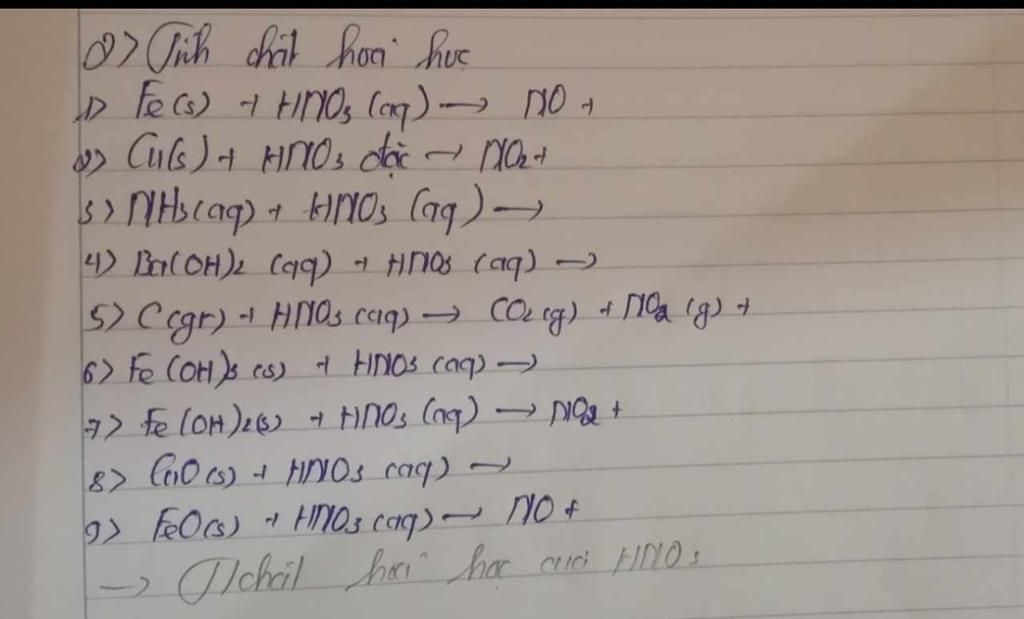 2> Tính chất hoá học
1> Fe(s) + HNO3 (aq) → NO +
2> Cu(s) + HNO3 đặc → NO2 +
3> NH3(aq) + HNO3 (aq) →
4> Ba(OH)2 (aq) + HNO3 (aq) →
5> C(gr) + HNO3 (aq) → CO2 (g) + NO2 (g) +
6> Fe(OH)3 (s) + HNO3 (aq) →
7> Fe(OH)2(s) + HNO3 (aq) → NO2 +
8> (s) + HNO3 (aq) →
9> FeO(s) + HNO3 (aq) → NO +
→ T/chất hoá học của HNO3